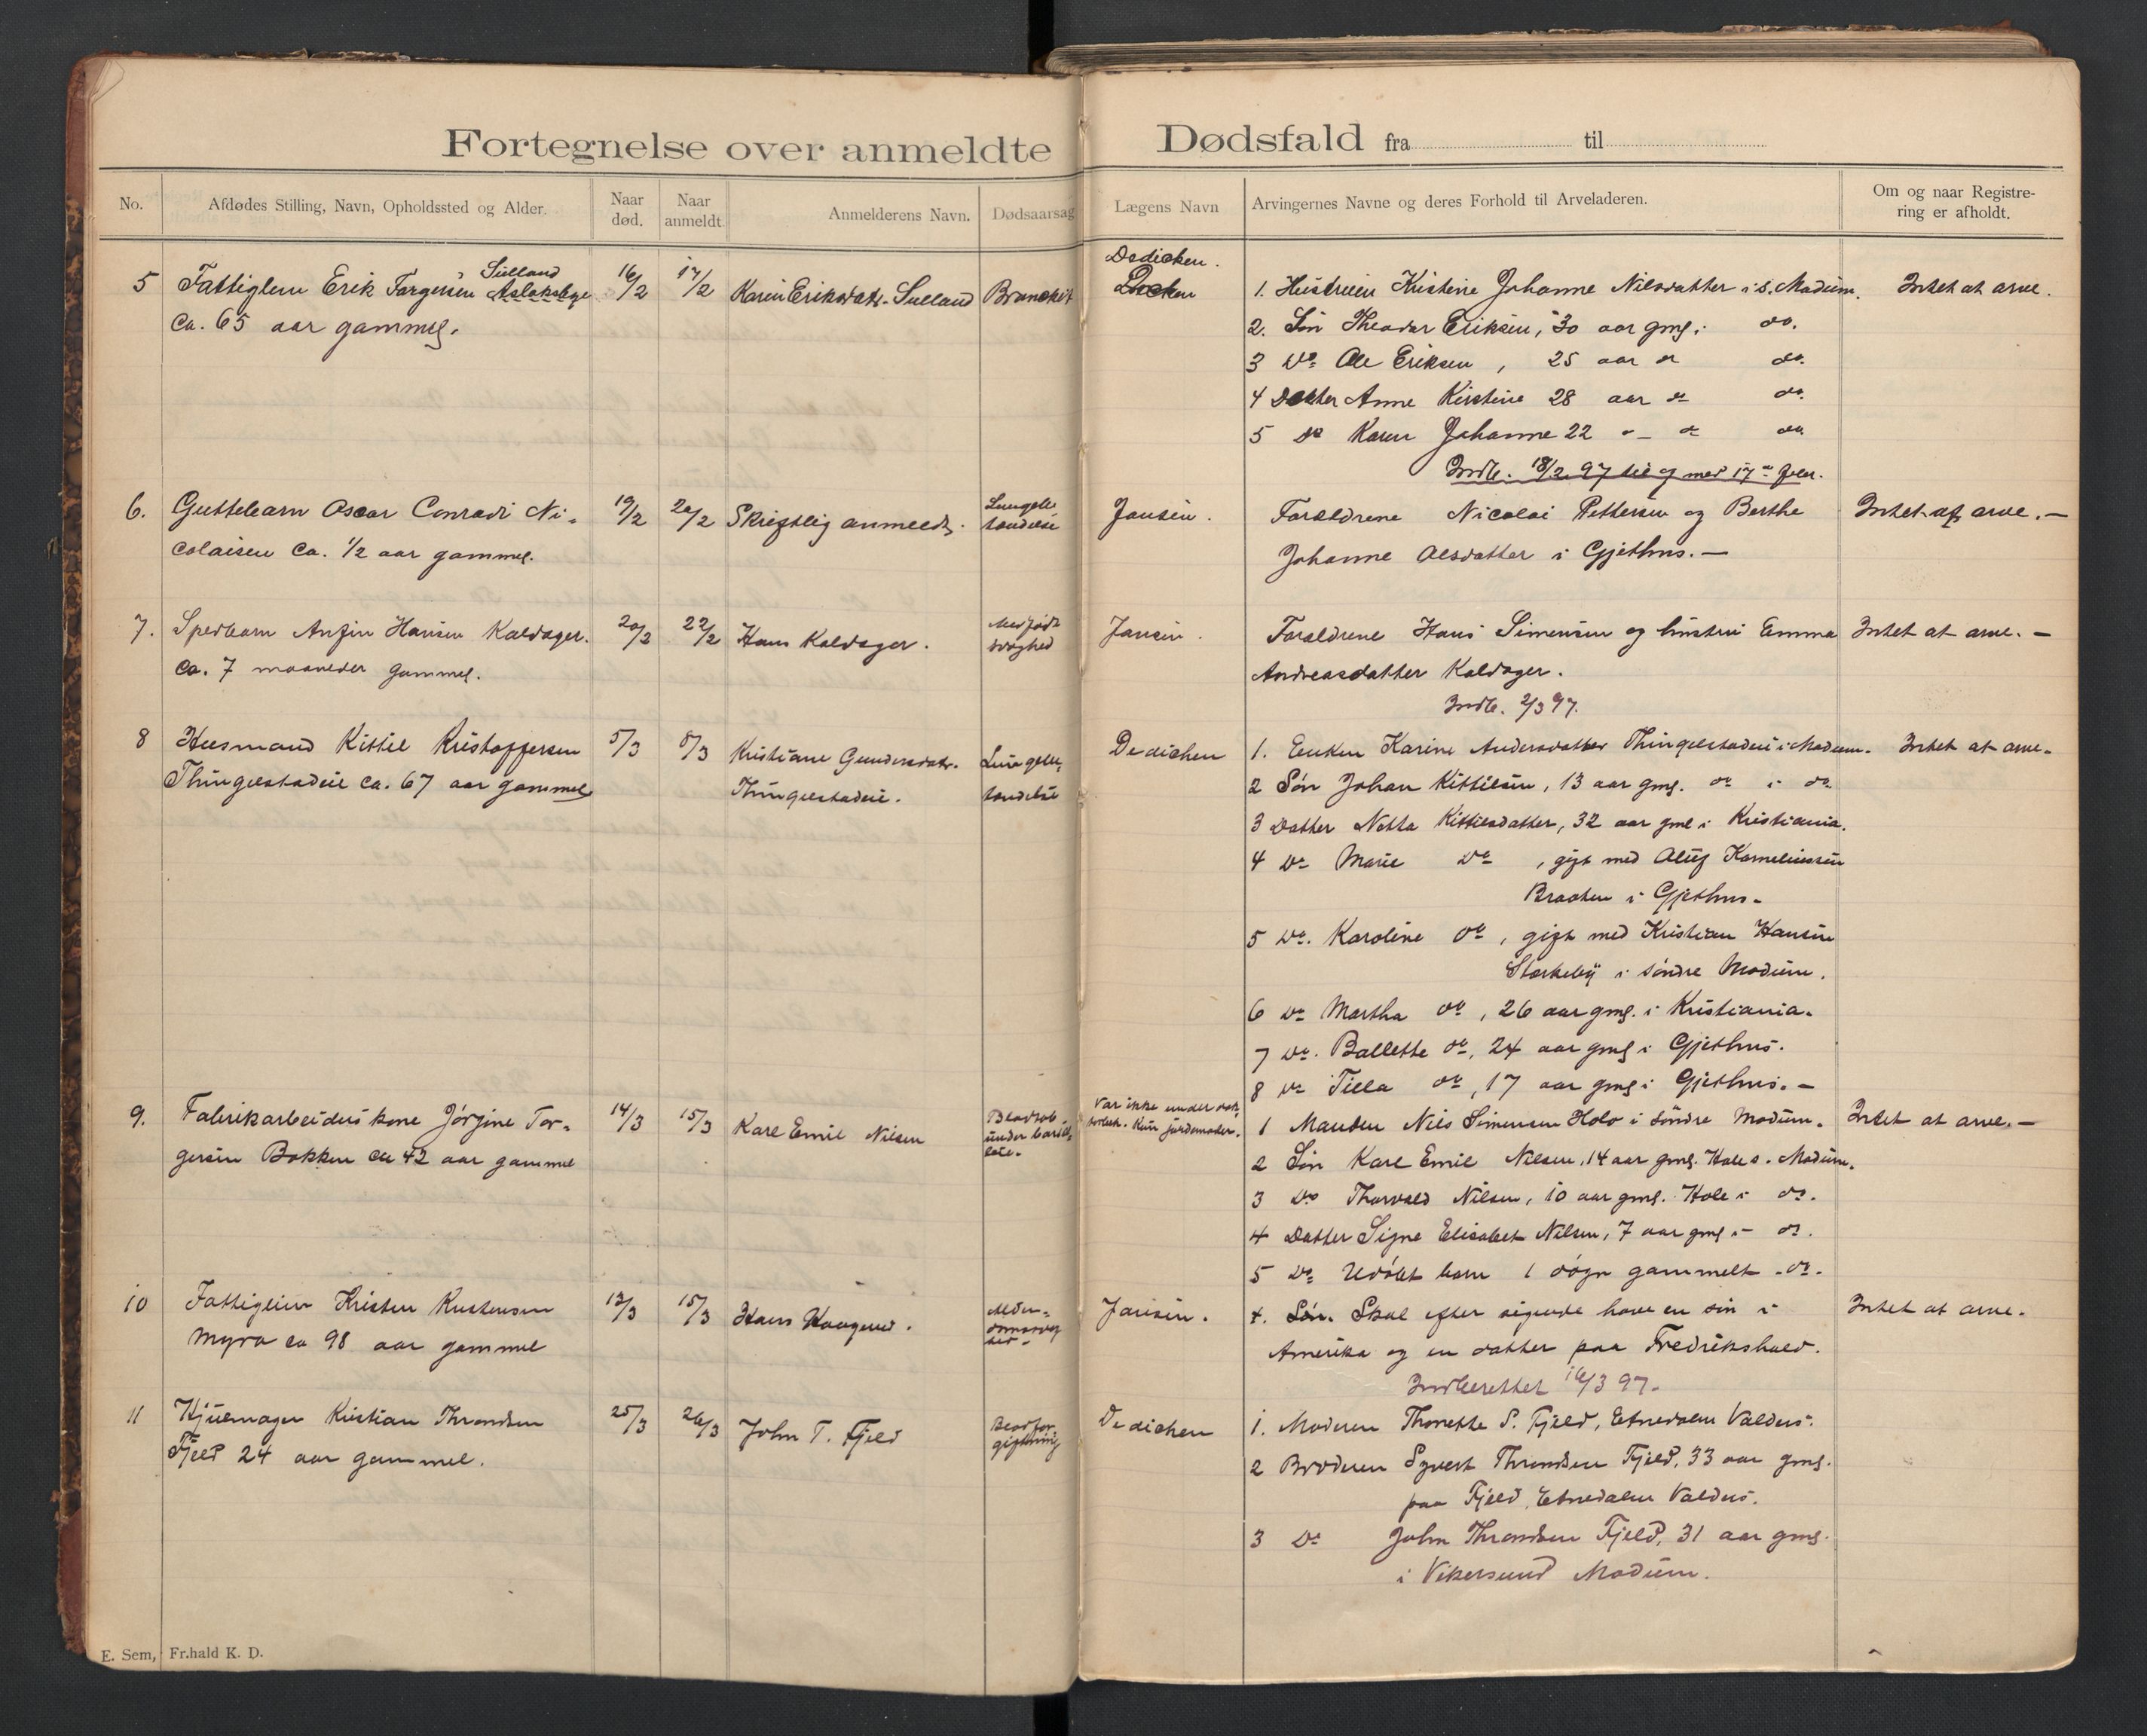 Fortegnelse over anmeldte Dødsfald fra til
No.
Afdødes Stilling, Navn, Opholdssted og Alder.
Naar død.
Naar anmeldt.
Anmelderens Navn.
Dødsaarsag
Lægens Navn
Arvingernes Navne og deres Forhold til Arveladeren.
Om og naar Registre-
ring er afholdt.
5 Fattiglem Erik Torgersen Sælland 16/2 17/2 Karin Eriksdatr. Sælland Dedichen.
ca. 65 aar gammel.
1. Hustruen Kristine Johanne Nilsdatter i s. Modum. Intet at arve.
2. Søn Theodor Eriksen, 30 aar gml. i do.
3 Do Ole Eriksen, 25 aar do do.
4 Datter Anne Kirstine 28 aar do do.
5 Do Karen Johanne 22 do do
Indb. 18/2 97 til og med 17de febr.
6. Guttebarn Oscar Conradi Ni-
colaisen ca. 1/2 aar gammel.
19/2 20/2 Skriftlig anmeldt.
Lungebe-
tændelse
Jansen.
Forældrene Nicolai Pettersen og Berthe
Johanne Olsdatter i Gjethus.—
Intet at arve.—
7. Spedbarn Anfin Hansen Kaldager.
ca. 7 maaneder gammel.
20/2 22/2 Hans Kaldager.
Medfødt
svaghed
Jansen.
Forældrene Hans Simensen og hustru Emma
Andreasdatter Kaldager.
Indb. 2/3 97.
Intet at arve.—
8 Husmand Kittil Kristoffersen
Thingelstadeie ca. 67 aar gammel
5/3 8/3 Kristiane Gundersdatr.
Thingelstadeie.
Lungebe-
tændelse
Dedichen
1. Enken Karine Andersdatter Thingelstadeie i Modum. Intet at arve.
2 Søn Johan Kittilsen, 13 aar gml. do i do
3 Datter Netta Kittilsdatter, 32 aar gml i Kristiania.
4 Do Marie Do, gift med Oluf Korneliussen
Braaten i Gjethus.
5 Do. Karoline do, gift med Kristian Hansen
Stærkeby i søndre Modum.
6 Do Martha do, 26 aar gml. i Kristiania.
7 Do. Ballette do, 24 aar gml i Gjethus.
8 Do Tilla do, 17 aar gml i Gjethus.—
9. Fabrikarbeiders kone Jørgine Tor-
gersen Bakken ca 42 aar gammel
14/3 15/3 Karl Emil Nilsen
under barsel-
Var ikke under
Kun jordemoder.
1 Manden Nils Simensen Hole i søndre Modum. Intet at arve.—
2 Søn Karl Emil Nilsen, 14 aar gml. Hole s. Modum.
3 Do Thorvald Nilsen, 10 aar gml. Hole i do.
4 Datter Signe Elisabet Nilsen, 7 aar gml i do.
5 Do Udøbt barn 1 døgn gammelt do.
10 Fattiglem Kristen Kristensen
Myra ca 98 aar gammel
13/3 15/3 Hans Haagerud.
Alder-
domssvag
hed
Jansen.
1. Søn. Skal efter sigende have en søn i
Amerika og en datter paa Fredrikshald.
Indberettet 16/3 97.
Intet at arve.
11 Hjulmager Kristian Throndsen
Fjeld 24 aar gammel.
25/3 26/3 John T. Fjeld
Blodfor
giftning
Dedichen
1. Moderen Thonette S. Fjeld, Etnedalen Valders.
2 Broderen Syvert Throndsen Fjeld, 33 aar gml.
paa Fjeld, Etnedalen Valders.
3 Do John Throndsen Fjeld, 31 aar gml.
i Vikersund Modum.
E. Sem, Fr.hald K. D.